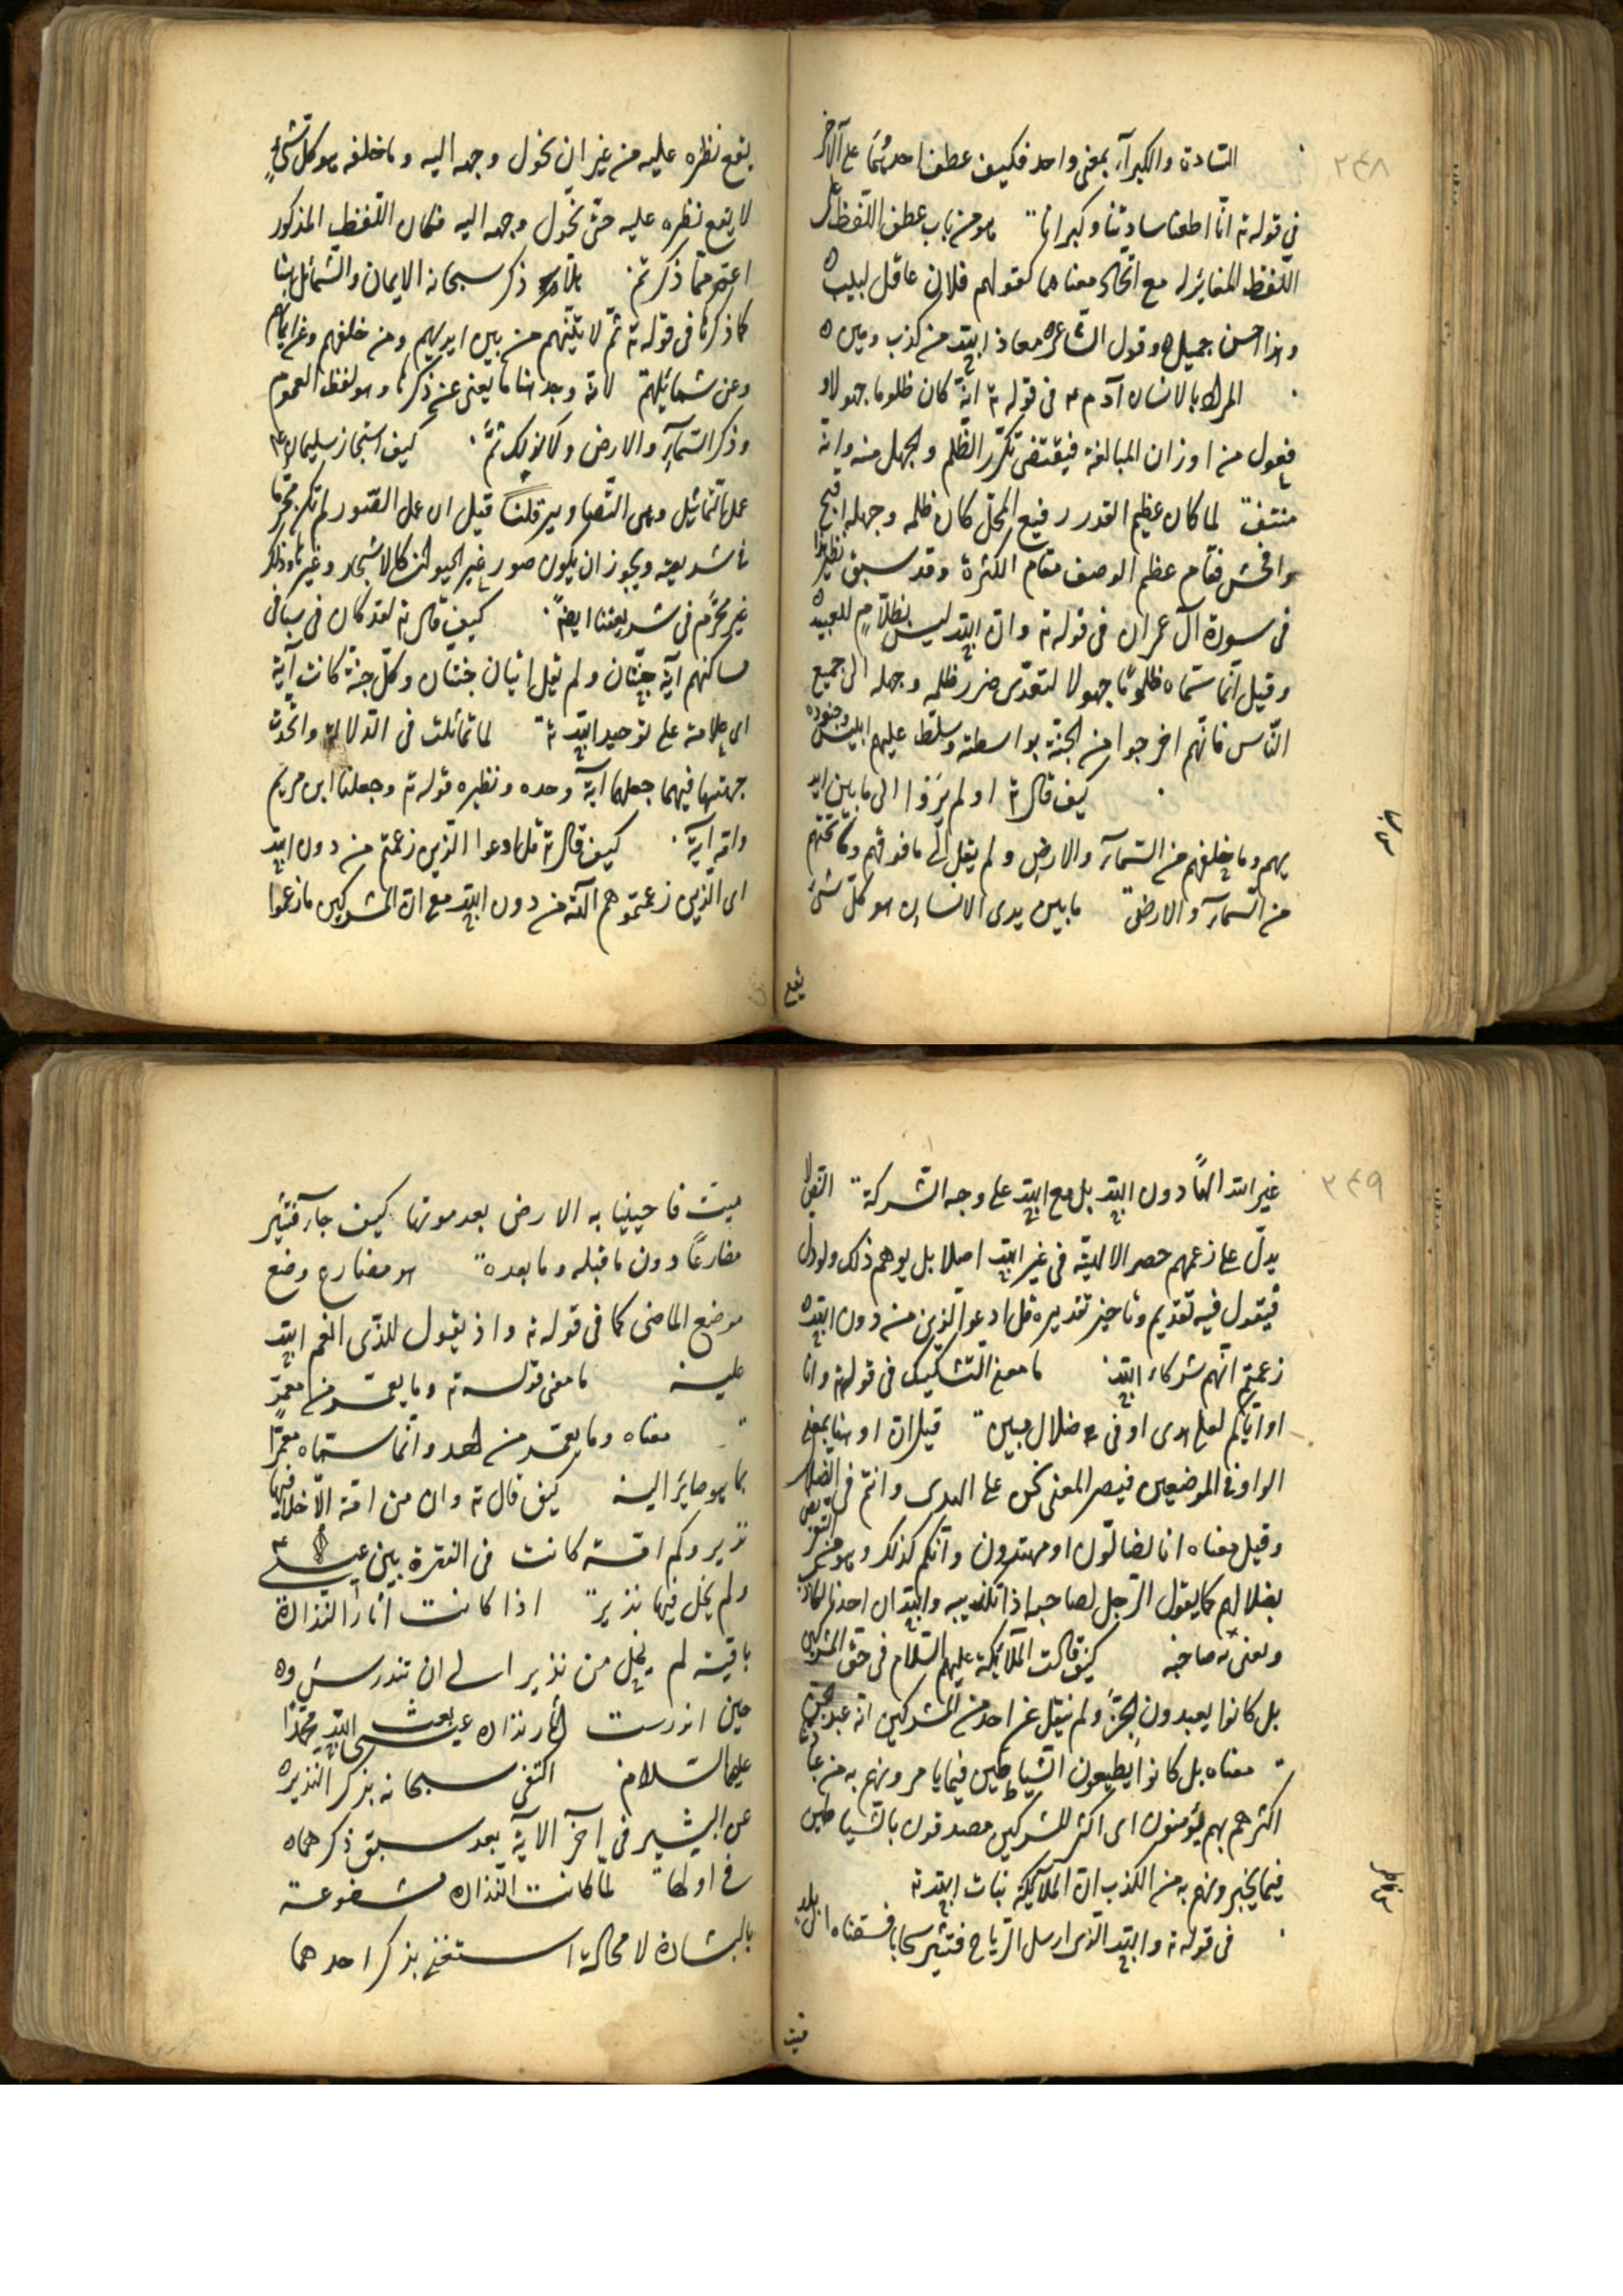 ٢٤٨
السادة والكبرآء بمعنى واحد فكيف عطف احدهما على الآخر
فى قوله ته انّا اطعنا سادتنا وكبرانا هو من باب عطف اللفظ على
اللفظ المغاير له مع اتحاد معناهما كقولهم فلان عاقل لبيب
وهذا حسن جميل وقول الشاعر معاذ الله من كذب ومين
المراد بالانسان آدم ع م فى قوله ته انه كان ظلوما جهولا و
فعول من اوزان المبالغة فيقتضى تكرّر الظّلم والجهل منه وانّه
منتف لما كان عظيم القدر رفيع المحلّ كان ظلمه وجهله اقبح
وافحش فقام عظم الوصف مقام الكثرة وقد سبق نظير هذا
فى سورة آل عمران فى قوله ته وان الله ليس بظلّام للعبيد
وقيل انّما سمّاه ظلومًا جهولا لتعدّى ضرر ظلمه وجهله الى جميع
النّاس فانّهم اخرجوا من الجنّة بواسطته وسلّط عليهم ابليس وجنوده
كيف قال ته اولم يَرَوا الى ما بين ايد
يهم وما خلفهم من السّمآء والارض ولم يقل الى ما فوقهم وما تحتهم
من السّمآء والارض ما بين يدى الانسان هو كلّ شئ
يقع
يقع نظره عليه من غير ان يحول وجهه اليه وما خلفه هو كلّ شئ
لا يقع نظره عليه حتّى يحول وجهه اليه فكان اللّفظ المذكور
اعمّ ممّا ذكر ثم هلّا ذكر سبحانه الايمان والشمائل هنا
كما ذكرنا فى قوله ته ثمّ لآتينّهم من بين ايديهم ومن خلفهم وعن ايمانهم
وعن شمائلهم لانّه وجد هنا ما يغنى عن ذكرها وهو لفظ العموم
وذكر السّمآء والارض ولا كذلك ثمّ كيف استجاز سليمان ع م
عمل التماثيل وهى التّصاوير قلنا قيل ان عمل الصّور لم تكن محرّما
فى شريعته ويجوز ان يكون صور غير الحيوان كالاشجار وغيرها وذلك
غير محرّم فى شريعتنا ايضا كيف قال ته لقد كان فى سبا فى
مساكنهم آية جنّتان ولم يقل آيتان جنتان وكلّ جنّة كانت آية
اى علامة على توحيد الله ته لما تماثلت فى الدلالة واتّحدت
جهتها فيهما جعلهما آية وحده ونظيره قوله ته وجعلنا ابن مريم
وامّه آية كيف قال ته قل ادعوا الّذين زعمتم من دون الله
اى الّذين زعمتموهم آلهة من دون الله مع انّ المشركين ما زعموا
٢٤٩
غير الله الهًا دون الله بل مع الله على وجه الشركة النّص لا
يدلّ على زعمهم حصر الالهيّة فى غير الله اصلا بل يوهم ذلك ولو دلّ
فيقول فيه تقديم وتاخير تقديره قل ادعوا الّذين من دون الله
زعمتم انّهم شركاء الله ما معنى التّشكيك فى قوله ته وانا
او ايّاكم لعلى هدى او فى ضلال مبين قيل ان او هنا بمعنى
الواو فى الموضعين فيصير المعنى نحن على الهدى وانتم فى الضّلال
وقيل معناه انا لضالّون او مهتدون وانّكم كذلك وهو من التعريض
بضلالهم كما يقول الرّجل لصاحبه اذا تكذيبه والله ان احدنا لكاذب
ويعنى به صاحبه كيف قالت الملآئكة عليهم السّلام فى حقّ المشركين
بل كانوا يعبدون الجنّ ولم ينقل عن احد من المشركين انّه عبد الجنّ
معناه بل كانوا يطيعون الشّياطين فيما يامرونهم به من
اكثرهم بهم مؤمنون اى اكثر المشركين مصدقون بالشّياطين
فيما يخبرونهم به من الكذب انّ الملآئكة بنات الله ته
فى قوله ته والله الّذى ارسل الرّياح فتثير سحابا فسقناه الى بلد
ميت
ميت فاحيينا به الارض بعد موتها كيف جآء فتثير
مضارعًا دون ما قبله وما بعده هو مضارع وضع
موضع الماضى كما فى قوله ته واذ تقول للذّى انعم الله
عليه ما معنى قوله ته وما يعمّر من معمّر
معناه وما يعمّر من احد وانّما سمّاه معمّرًا
بما هو صائر اليه كيف قال ته وان من امّة الّا خلا فيها
نذير وكم امّة كانت فى الفترة بين عيسى ع م
ولم يخل فيها نذير اذا كانت آثار النّذارة
باقية لم يخل من نذير الى ان تندرس و
حين اندرست آثار نذارة عيسى بعث الله محمّدًا
عليهما السّلام اكتفى سبحانه بذكر النّذير
عن البشير فى آخر الآية بعد سبق ذكرهما
فى اولها لما كانت النّذارة مشفوعة
بالبشارة لا محالة استغنى بذكر احدهما